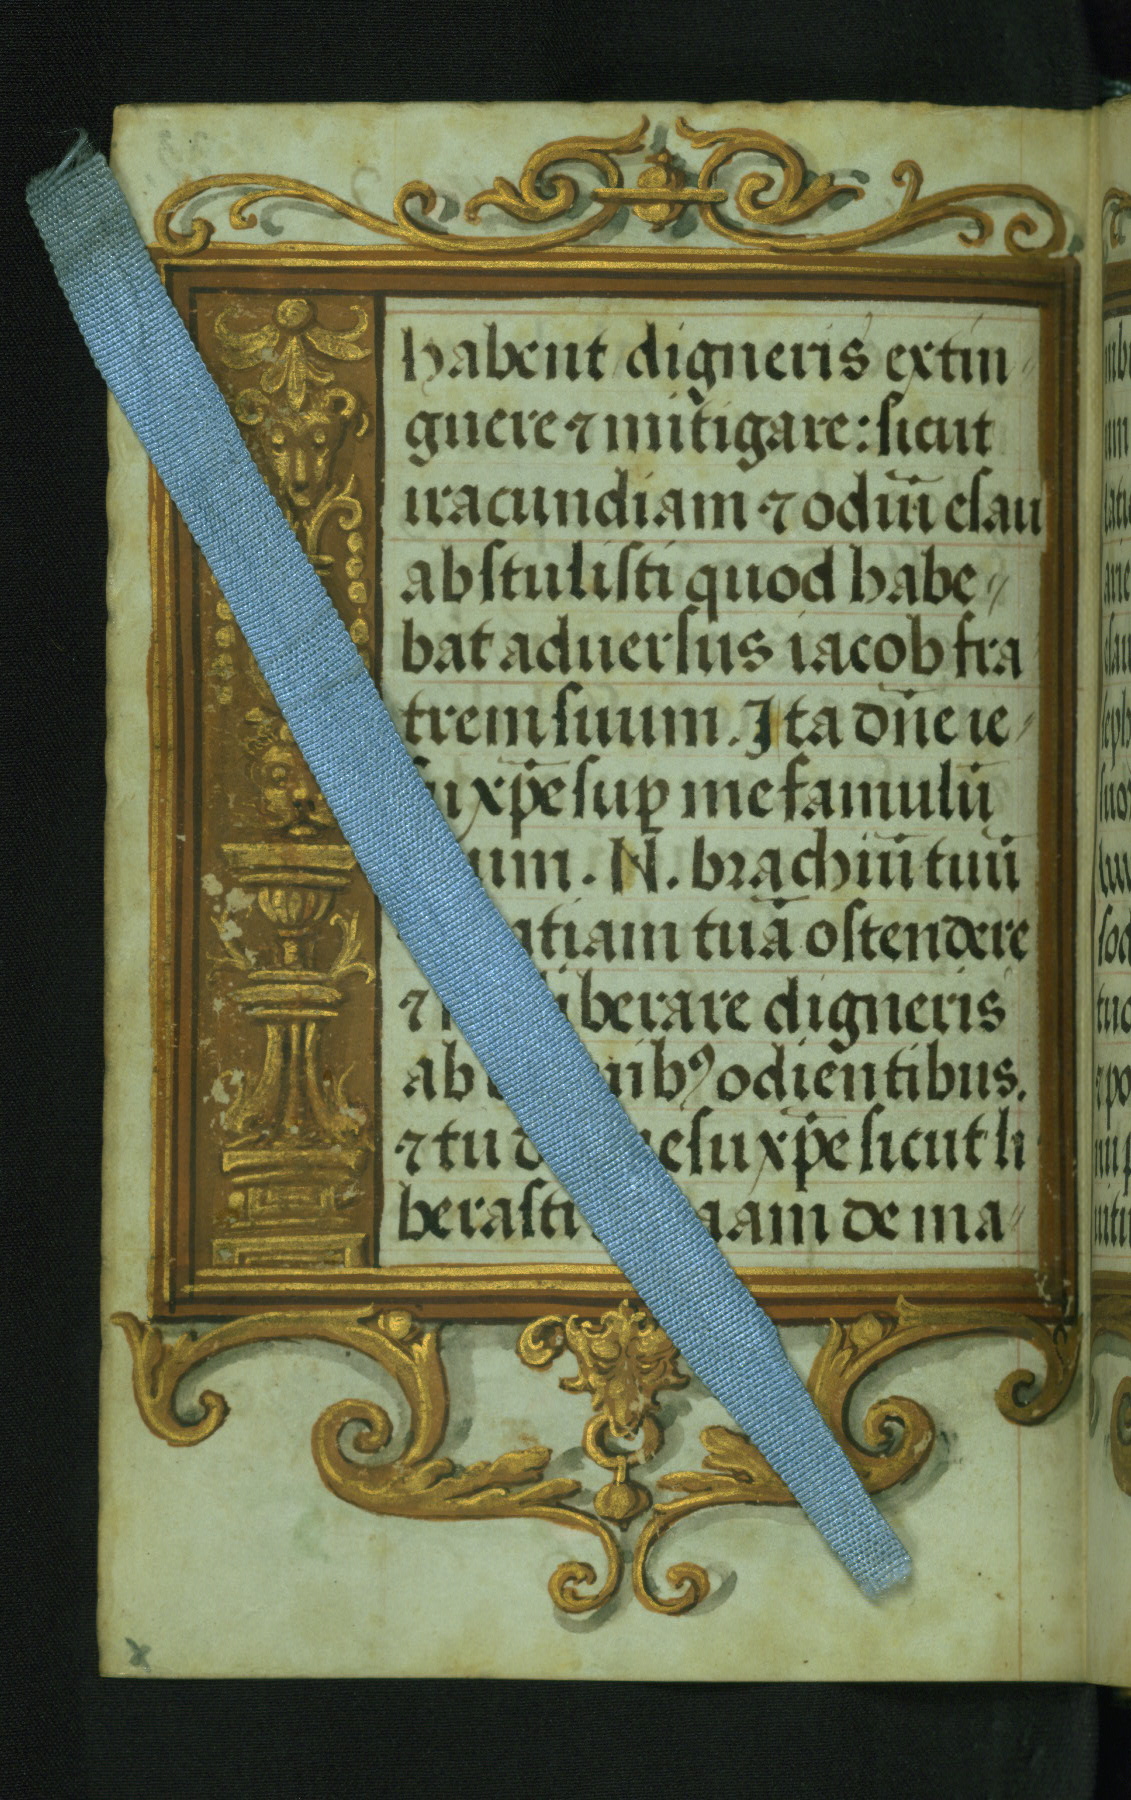 habent digneris extin
guere ⁊ mitigare: sicut
iracundiam ⁊ odiū esau
abstulisti quod habe
bat aduersus iacob fra
trem suum. Ita dn̄e ie
xp̄e suꝑ me famulū
N. brachiū tuū
tuā ostendere
⁊ digneris
ab odientibus.
⁊ tu iesu xp̄e sicut li
berasti de ma